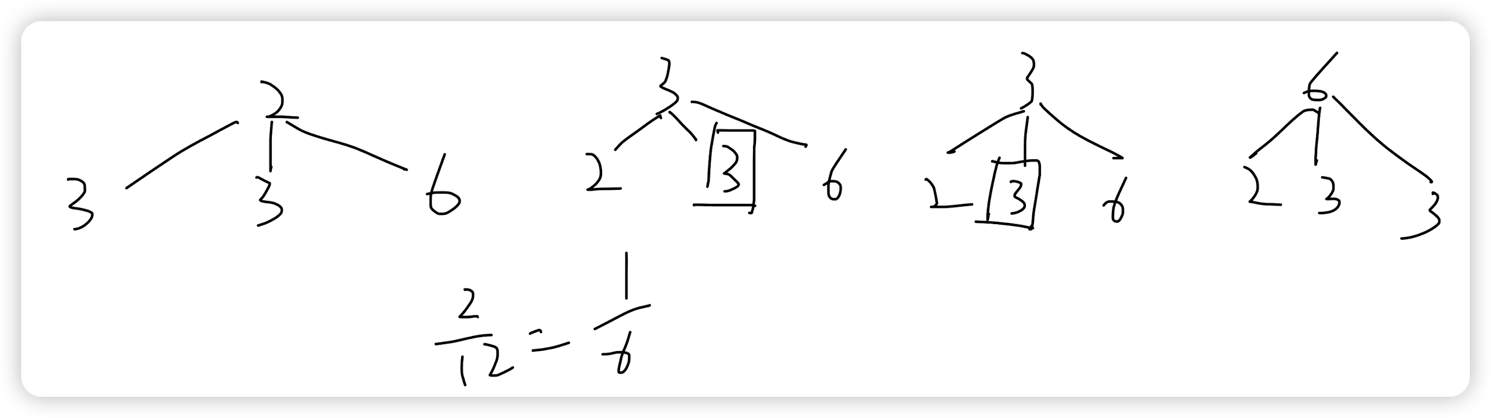 2 3 3 6
3 3 6 2 3 6 2 3 6 2 3 3
2/12 = 1/6